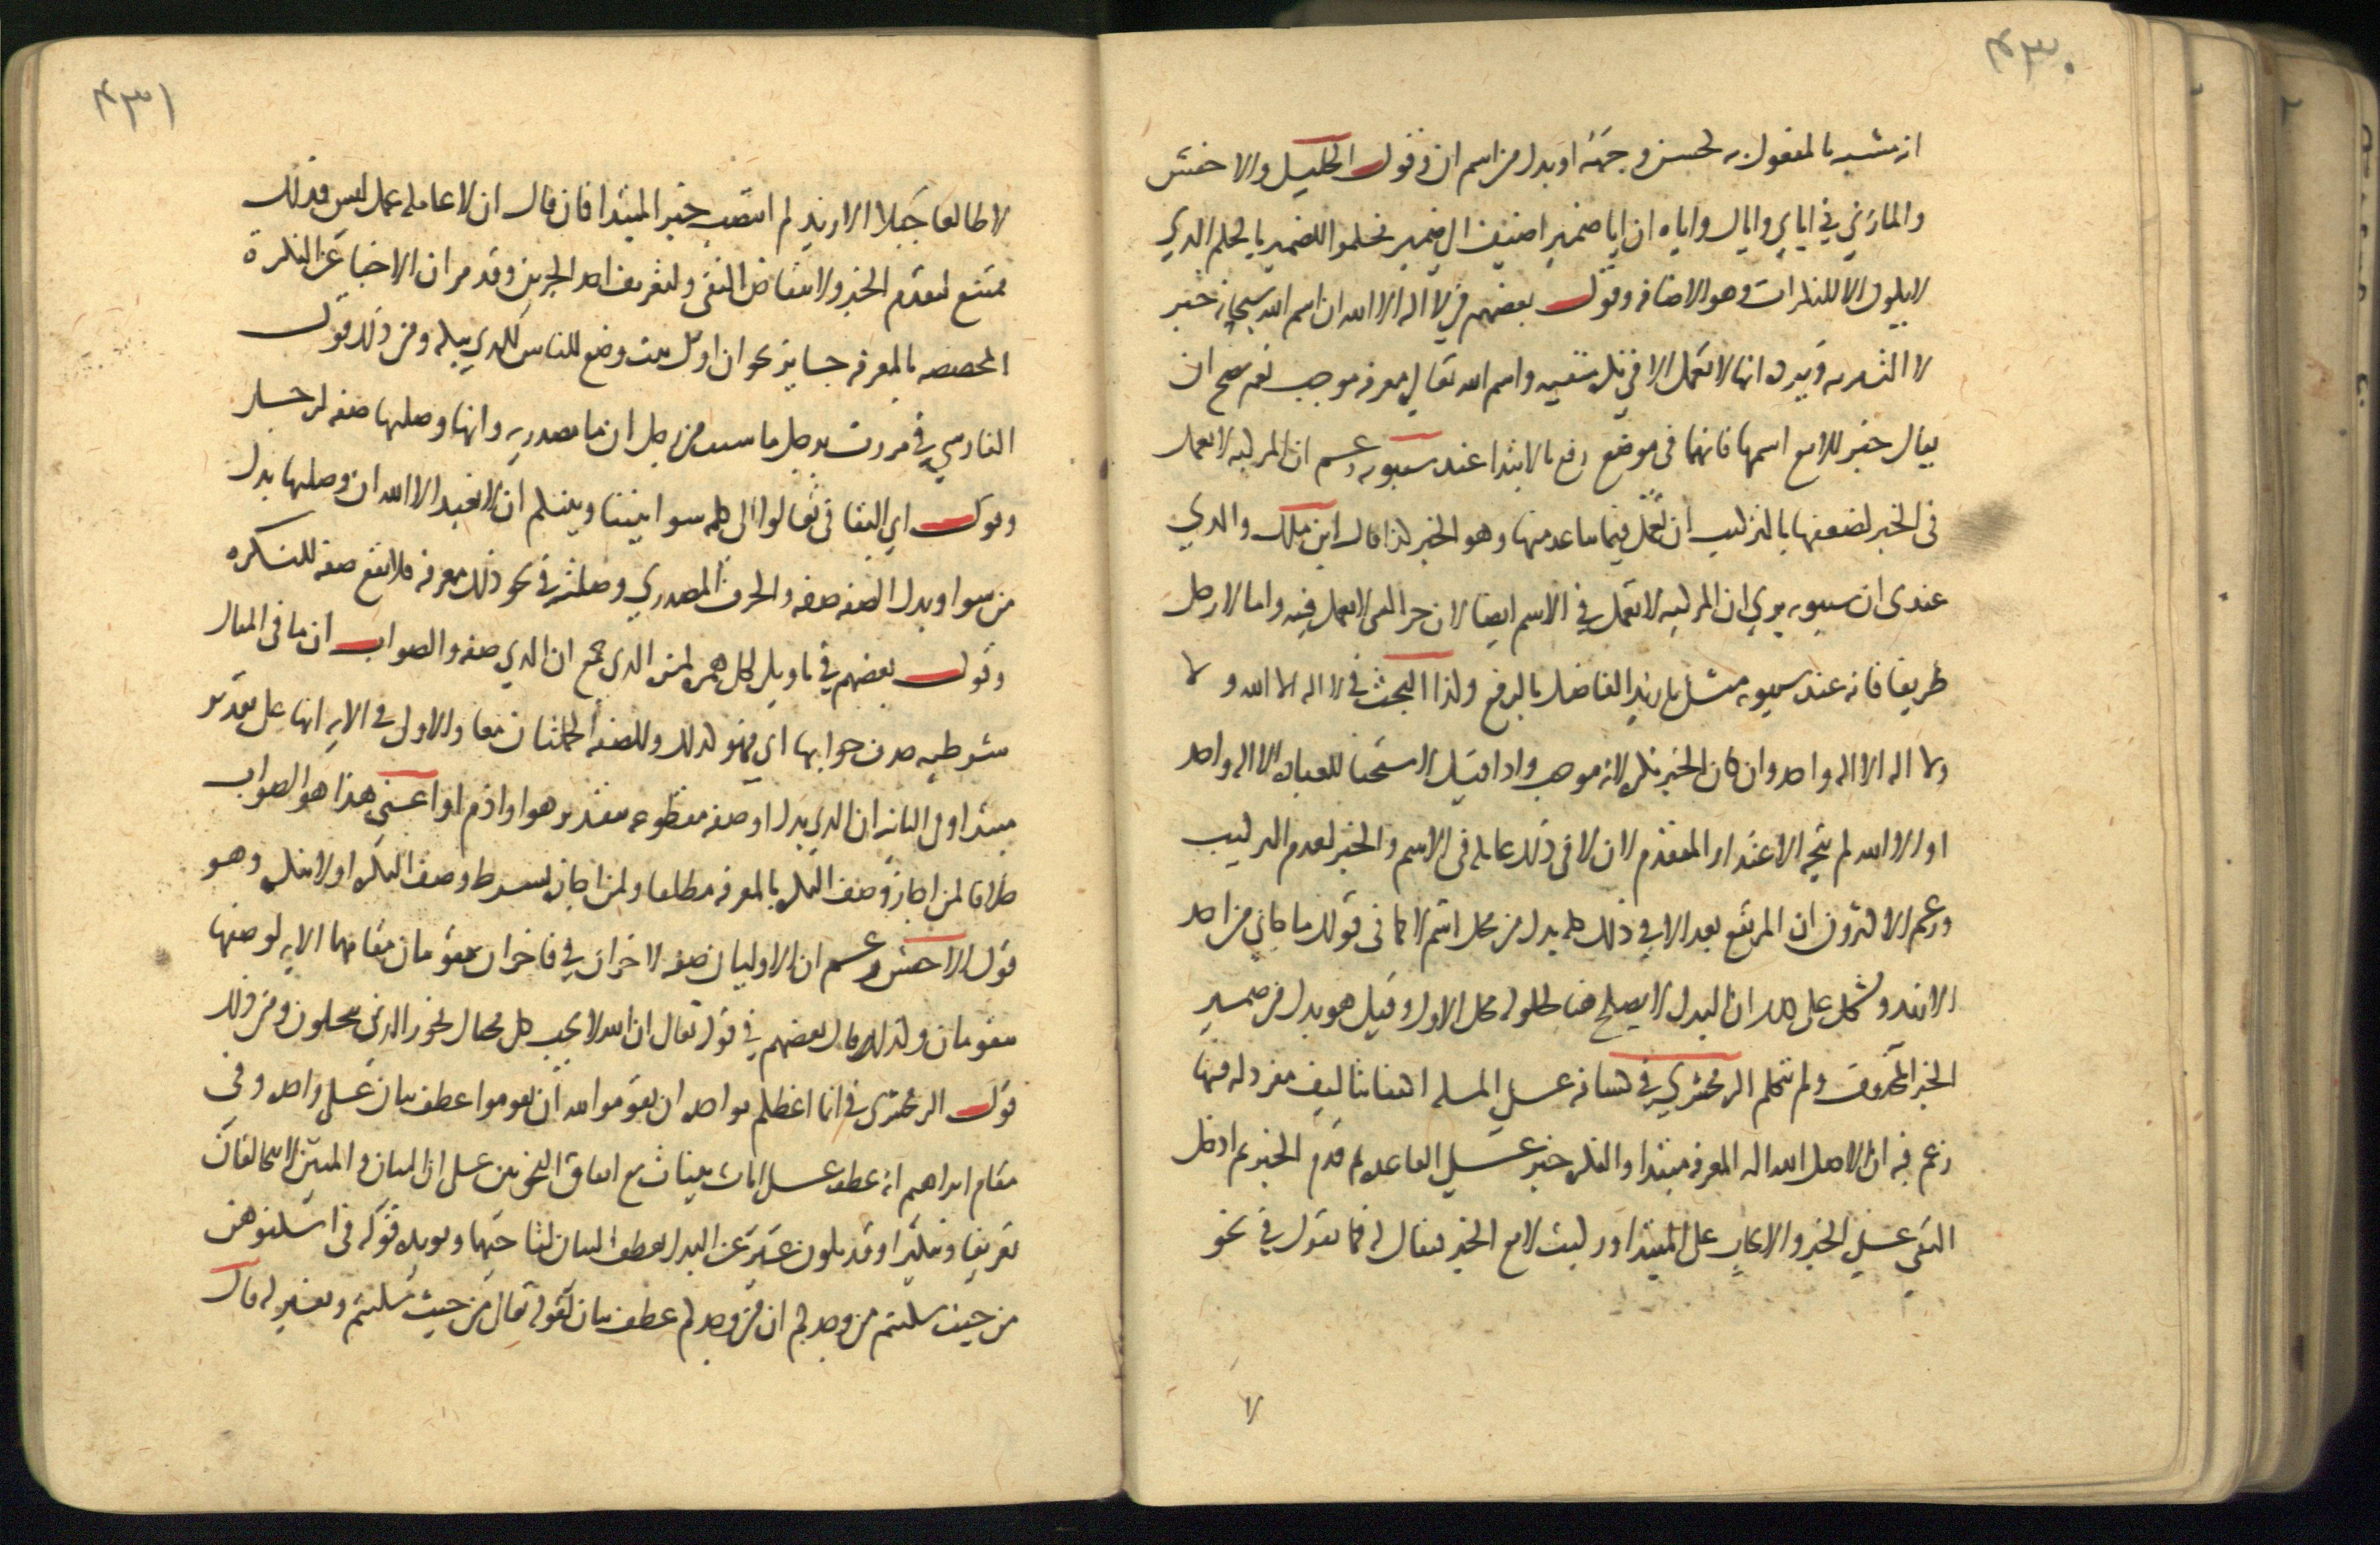 ٤٣٠
انه مشبه بالمفعول به كحسن وجهه او بدل من اسم ان وقول الخليل والاخفش
والمازني في اياي واياك واياه ان ايا ضمير اضيف الى ضمير فحكموا للضمير بالحكم الذي
لا يكون الا للنكرات وهو الاضافه وقول بعضهم في لا اله الا الله ان اسم الله سبحانه خبر
لا التبريه ويرده انها لا تعمل الا في نكره منفيه واسم الله تعالى معرفه موجب نعم يصح ان
يقال خبر للا مع اسمها فانهما في موضع رفع بالابتدا عند سيبويه وزعم ان المركبه لا تعمل
في الخبر لضعفها بالتركيب ان تعمل فيما تباعد منها وهو الخبر كذا قال ابن ملك والذي
عندى ان سيبويه يرى ان المركبه لا تعمل في الاسم ايضا لان جزا الشي لا يعمل فيه واما لا رجل
ظريفا فانه عند سيبويه مثل يا زيد الفاضل بالرفع ولذا البحث في لا اله الا الله و لا
ولا اله الا اله واحد وان كان الخبر نكره لانه موجب واذا قيل لا مستحقا للعباده الا اله واحد
او الا الله لم يتجه الاعتذار المتقدم لان لا في ذلك عامله في الاسم والخبر لعدم التركيب
وزعم الاكثرون ان المرتفع بعد الا في ذلك كله بدل من محل اسم لا كما في قولك ما جاني من احد
الا زيد ويشكل على ذلك ان البدل لا يصلح هنا لحلوله محل الاول وقيل هو بدل من ضمير
الخبر المحذوف ولم يتكلم الزمخشري في كشافه على المسله اكتفا بتاليف مفرد له فيها
زعم فيه ان الاصل الله اله المعرفه مبتدا والنكره خبر على القاعده ثم قدم الخبر ثم ادخل
النفي على الخبر والايجاب على المبتدا وركبت لا مع الخبر فيقال له فما تقول في نحو
لا
٤٣١
لا طالعا جبلا الا زيد لم انتصب خبر المبتدا فان قال ان لا عامله عمل ليس فذلك
ممتنع لتقدم الخبر ولانتقاض النفي ولتعريف احد الجزين وقد مر ان الاخبار عن النكرة
المخصصه بالمعرفه جايز نحو ان اول بيت وضع للناس للذي ببكه ومن ذلك قول
الفارسي في مررت برجل ما شيت من رجل ان ما مصدريه وانها وصلتها صفه لرجل
وقول ابي البقا في تعالوا الى كلمه سوا بيننا وبينكم ان لا نعبد الا الله ان وصلتها بدل
من سوا وبدل الصفه صفه والحرف المصدري وصلته في نحو ذلك معرفه فلا تقع صفه للنكره
وقول بعضهم في تاويل لكل همزه لمزه الذي جمع ان الذي صفه والصواب ان ما في المثال
شرطيه حذف جوابها اي فهو كذلك وللصفه الجملتان معا والاول في الايه انها على تقدير
مبتدا وفي الثانيه ان الذي بدل او صفه مقطوعه بتقدير هو او اذم او اعني هذا هو الصواب
خلافا لمن اجاز وصف النكره بالمعرفه مطلقا ولمن اجازه بشرط وصف النكره اولا بنكره وهو
قول الاخفش وزعم ان الاوليان صفه لاخران في فاخران يقومان مقامهما الايه لوصفها
بيقومان ولذلك قال بعضهم في قوله تعالى ان الله لا يحب كل مختال فخور الذين يبخلون ومن ذلك
قول الزمخشري في انما اعظكم بواحده ان تقوموا لله ان تقوموا عطف بيان على واحده وفي
مقام ابراهيم انه عطف على ايات بينات مع اتفاق النحويين على ان البيان والمبين لا يتخالفان
تعريفا وتنكيرا وقد يكون عبر عن البدل بعطف البيان لتاخيهما ويويده قوله في اسكنوهن
من حيث سكنتم من وجدكم ان من وجدكم عطف بيان لقوله تعالى من حيث سكنتم وتفسير له قال